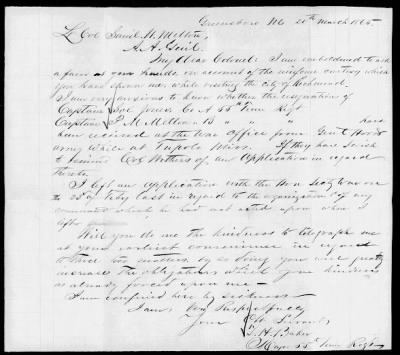 Greensboro NC 20th March 1865
Lt Col Saml W. Melton,
A. A. Genl.
My Dear Colonel: I am emboldened to ask
a favor at your hands on account of the uniform courtesy which
you have shown me while visiting the city of Richmond.
I am very anxious to know whether the resignations of
Captain Joe Jones Co 55th Tenn Regt
Captain J. M. McMean B " " " " have
been received at the War Office from Genl Hood's
army which at Tupelo Miss. If they have I wish
to remind Col Withers of an application in regard
thereto
I left an application with the Hon Secty War on
the 25th of Feby last in regard to the organization of my
command which he had not acted upon when I
left
Will you do me the kindness to telegraph me
at your earliest convenience in regard
to these two matters, by so doing you will greatly
increase the obligations which your kindness
has already forced upon me
I am confined here by sickness
I am, Very Respectfully
Your Obt Servant
J. H. Baker
Major 55th Tenn Regt